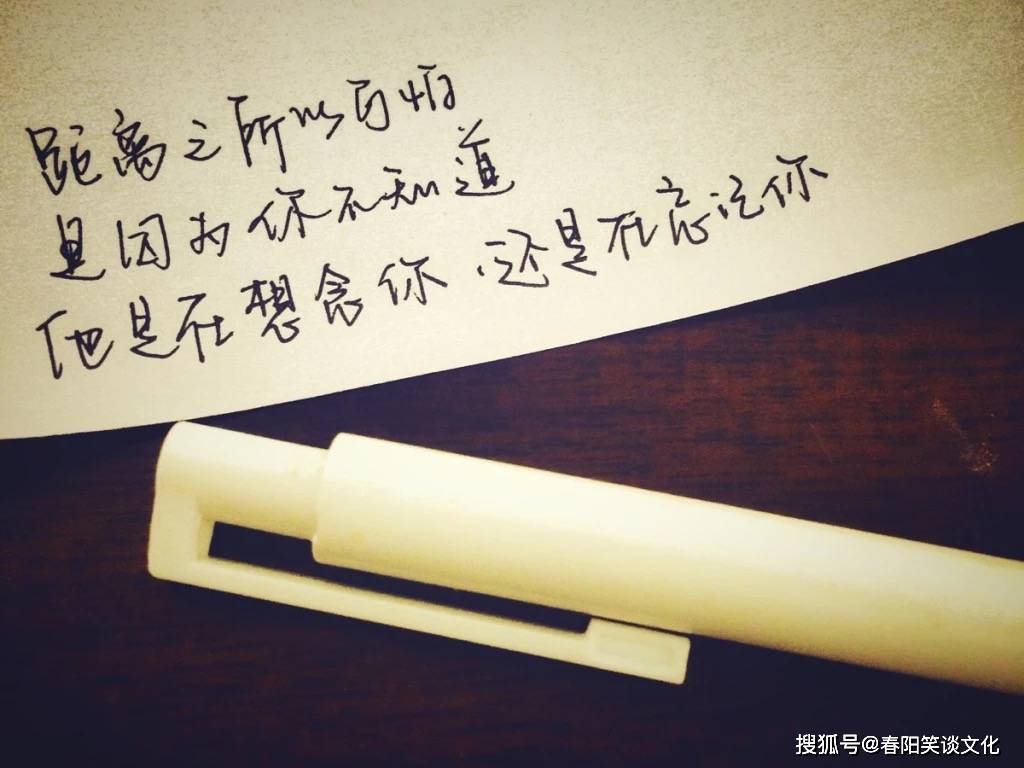 距离之所以可怕
是因为你不知道
他是在想念你 还是在忘记你
搜狐号@春阳笑谈文化